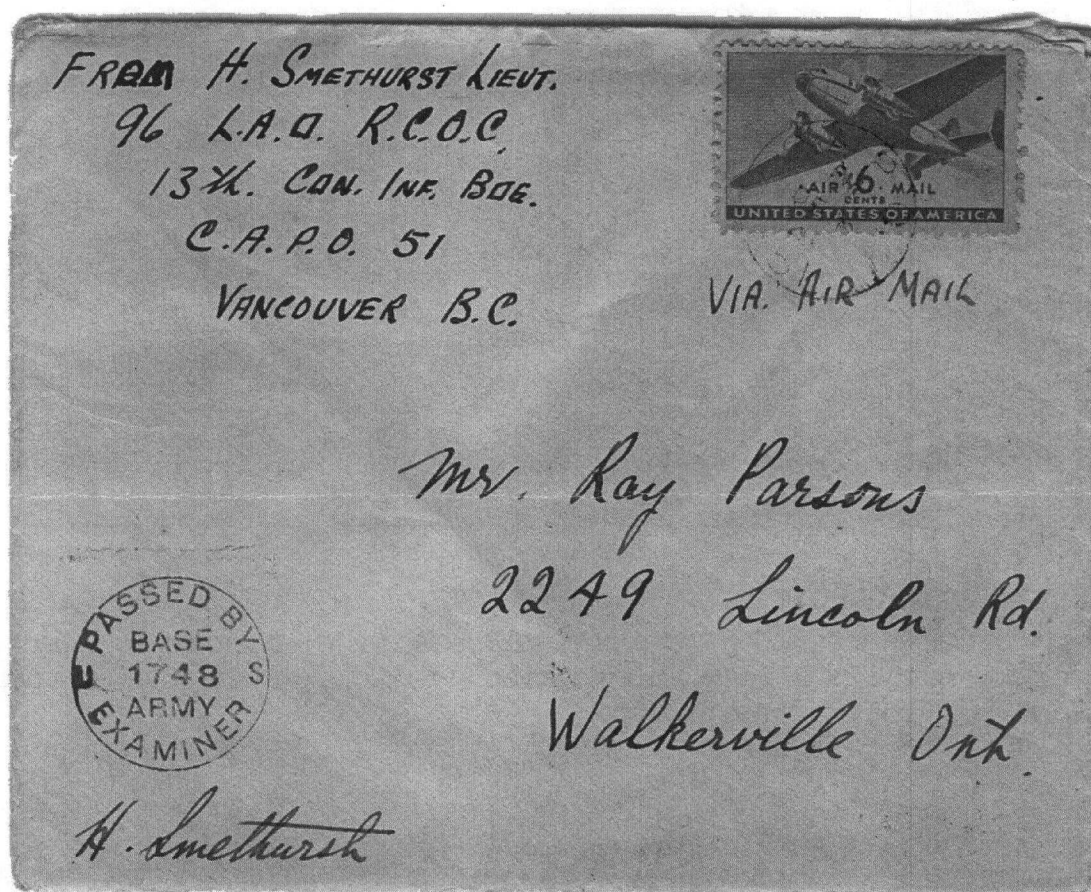 FROM H. SMETHURST LIEUT.
96 L.A.D. R.C.O.C.
13th. CAN. INF. BDE.
C.A.P.O. 51
VANCOUVER B.C.
AIR 6 MAIL
CENTS
UNITED STATES OF AMERICA
VIA. AIR MAIL
Mr. Ray Parsons
2249 Lincoln Rd.
Walkerville Ont.
PASSED BY
BASE
U 1748 S
ARMY
EXAMINER
H. Smethurst